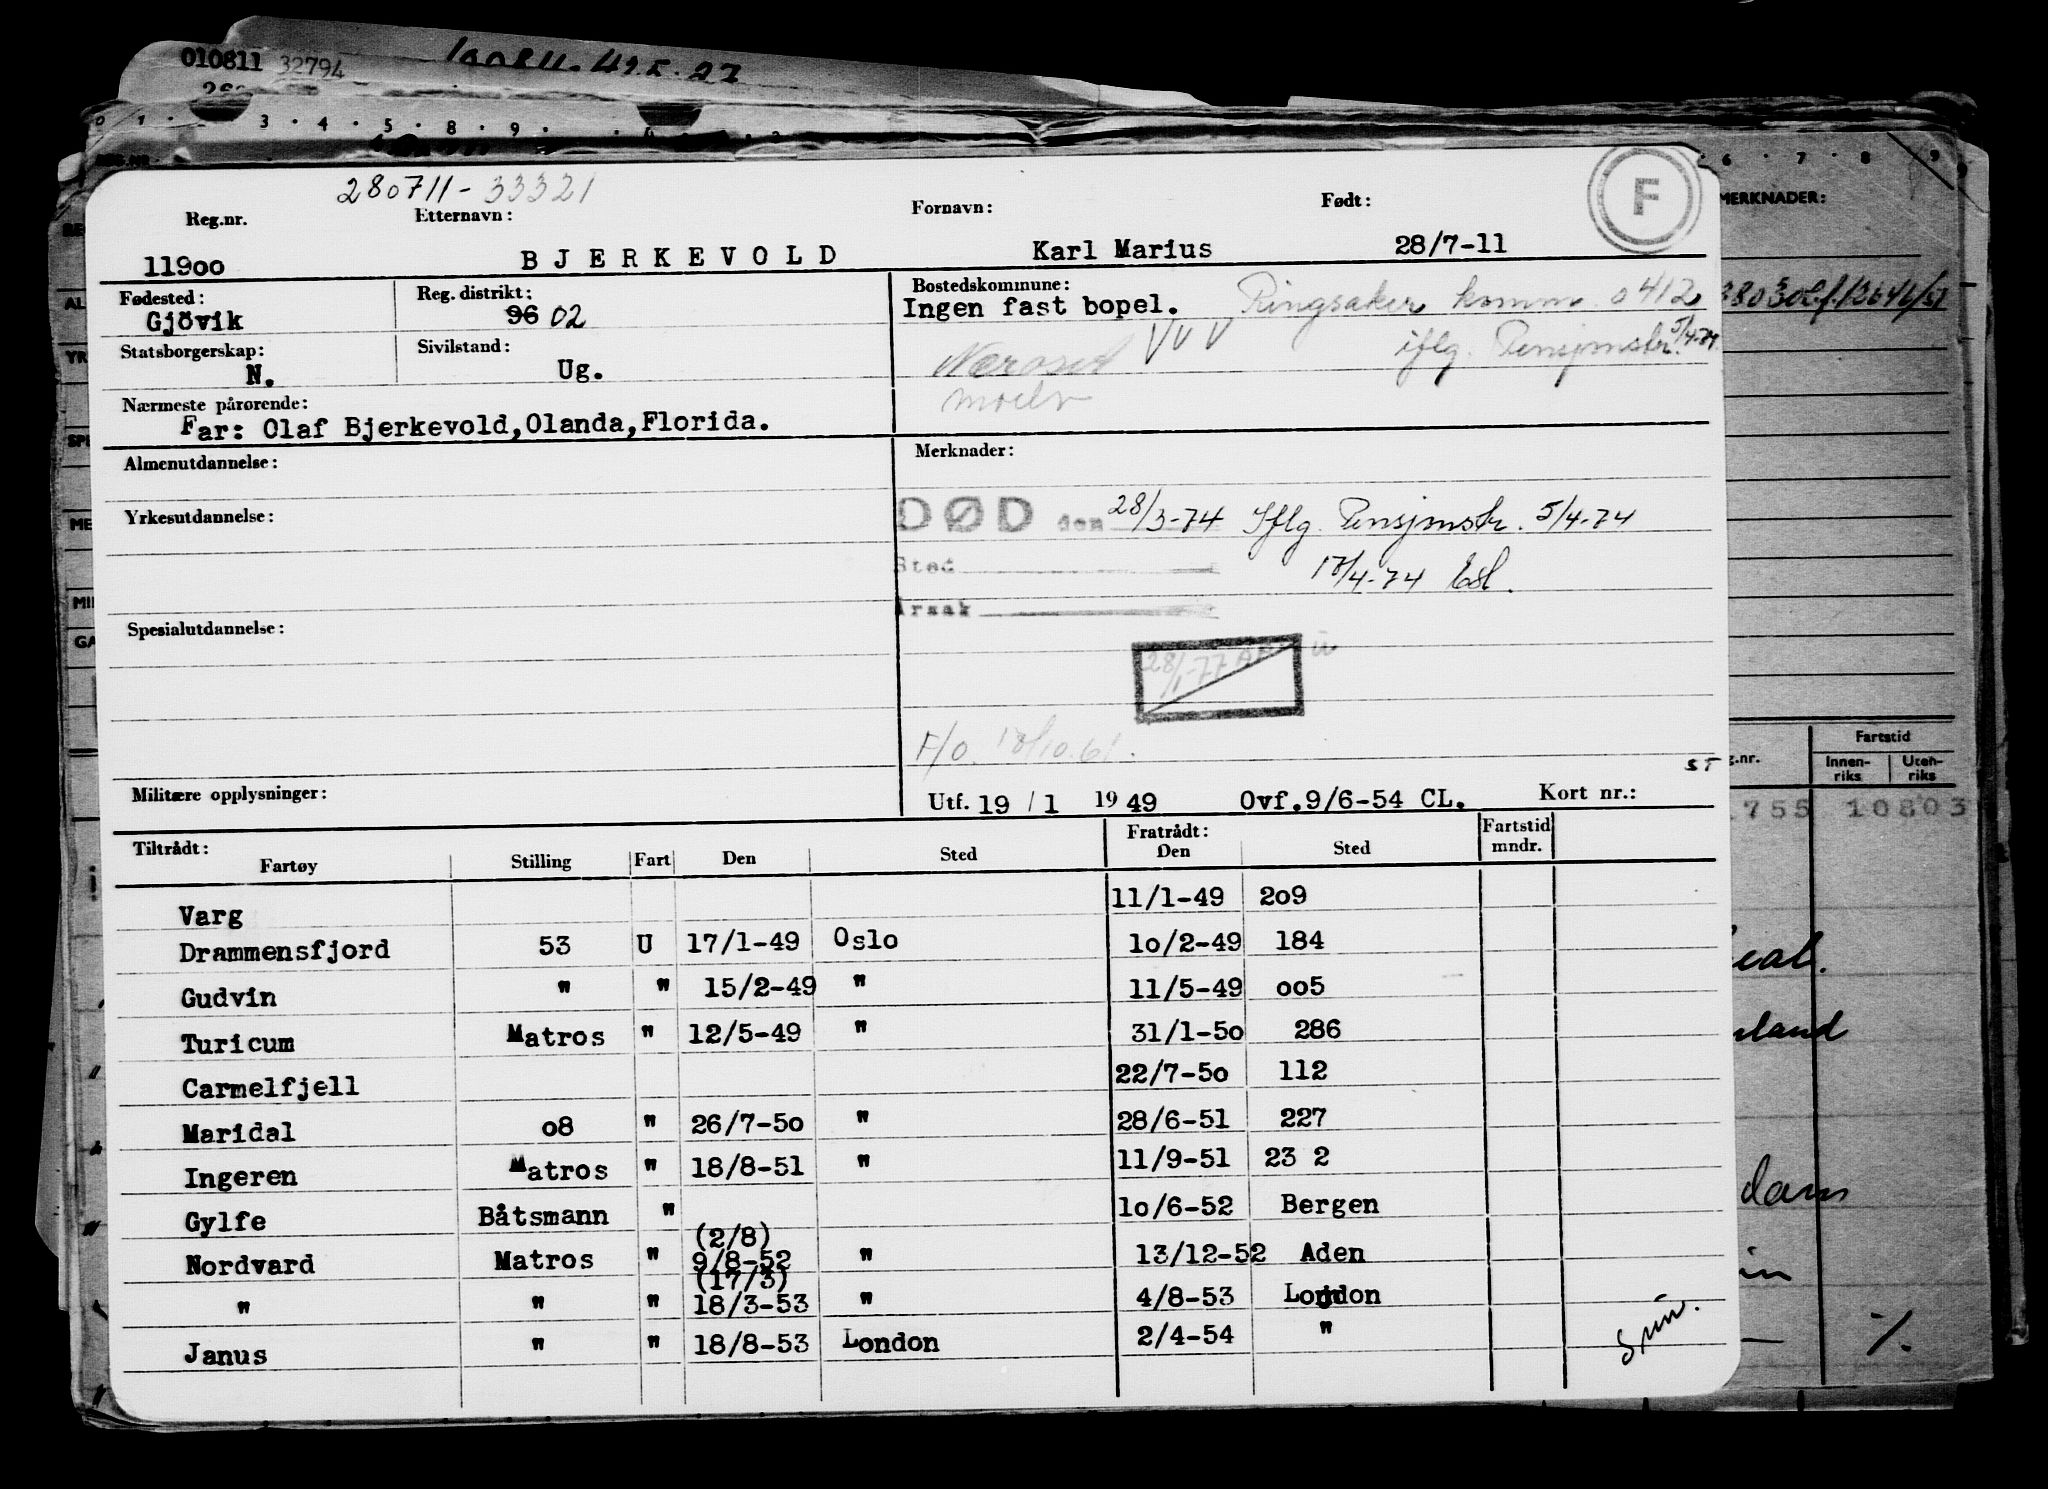 010811 32794
0 1 . 3 . 4 . 5 . 8 . 9 .
6 . 7 . 8 . 9
MERKNADER:
280711-33321
Reg.nr. Etternavn: Fornavn: Født: F
119oo BJERKEVOLD Karl Marius 28/7-11
Fødested: Reg. distrikt: Bostedskommune:
Gjövik 96 02 Ingen fast bopel. Ringsaker komm. 0412
iflg. Pensjonstr. 5/4-74
Statsborgerskap: Sivilstand:
N. Ug.
Nærmeste pårørende:
Far: Olaf Bjerkevold,Olanda,Florida.
Almenutdannelse: Merknader:
Yrkesutdannelse: DØD den 28/3-74 Iflg. Pensjonstr. 5/4-74
Sted
Årsak
Spesialutdannelse:
28/1-77
F/O.
ST
Militære opplysninger: Utf. 19 / 1 1949 Ovf.9/6-54 CL. Kort nr.:
Fartstid
Innen-riks Uten-riks
755 10803
Tiltrådt: Fratrådt: Fartstid mndr.
Fartøy Stilling Fart Den Sted Den Sted
Varg 11/1-49 2o9
Drammensfjord 53 U 17/1-49 Oslo 1o/2-49 184
Gudvin " " 15/2-49 " 11/5-49 oo5
Turicum Matros " 12/5-49 " 31/1-5o 286
Carmelfjell 22/7-5o 112
Maridal o8 " 26/7-5o " 28/6-51 227
Ingeren Matros " 18/8-51 " 11/9-51 23 2
Gylfe Båtsmann " 1o/6-52 Bergen
(2/8)
Nordvard Matros " 9/8-52 " 13/12-52 Aden
(17/3)
" " " 18/3-53 " 4/8-53 London
Janus " " 18/8-53 London 2/4-54 "